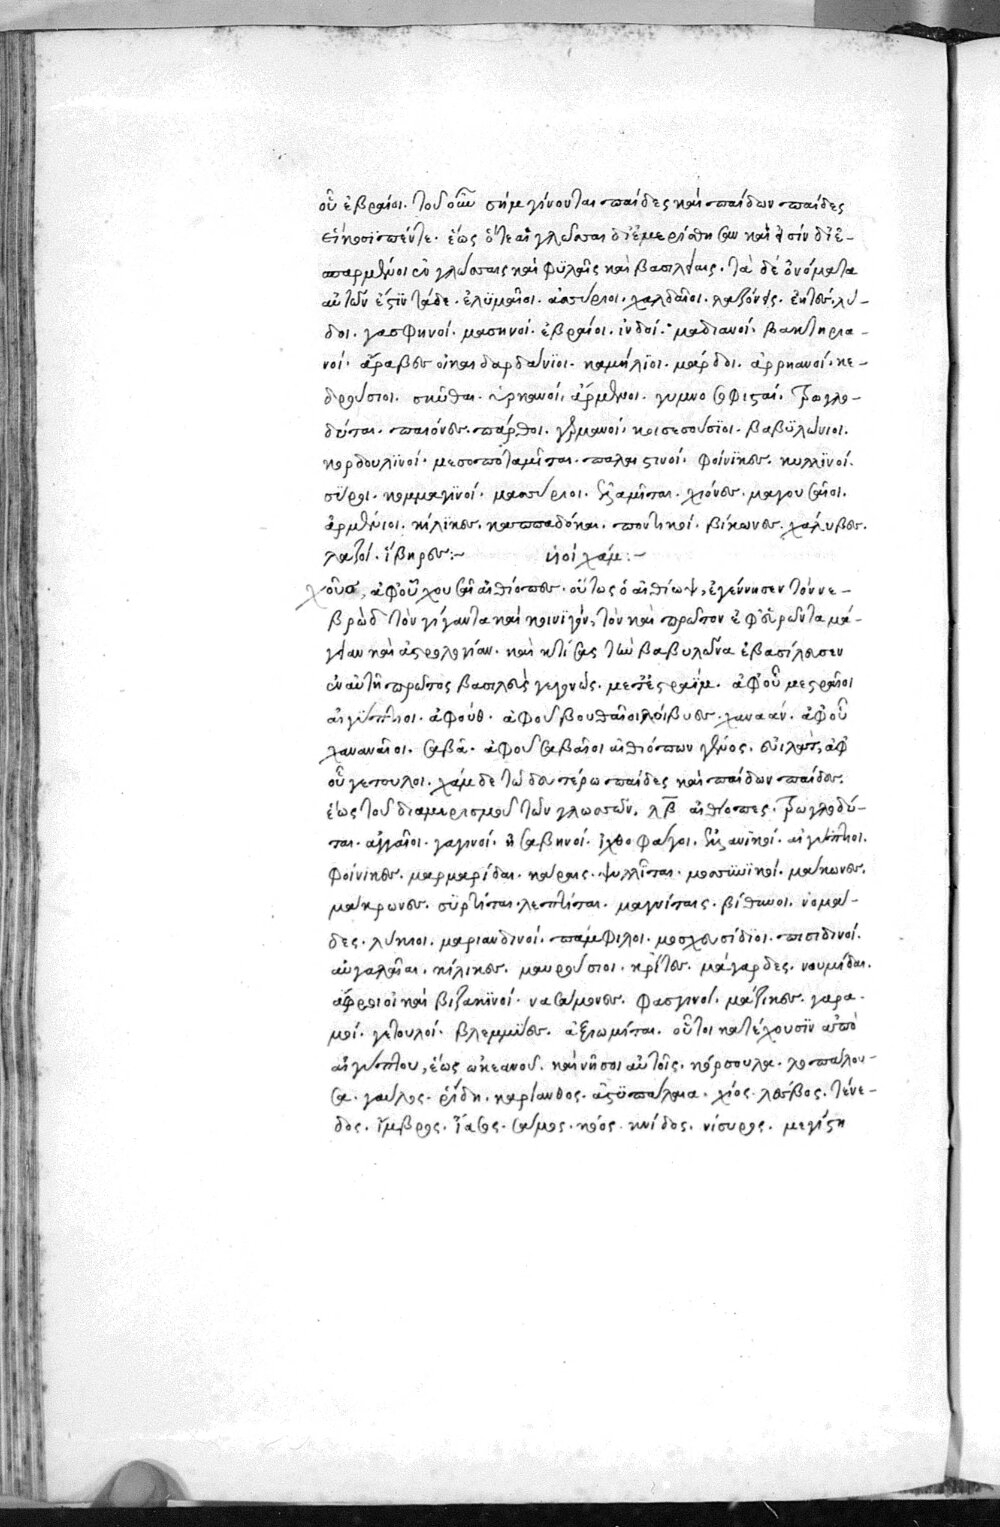 οὗ ἑβραῖοι. τοῦ οὖν σὴμ γίνονται παῖδες καὶ παίδων παῖδες
εἰκοσιπέντε. ἕως ὅτε αἱ γλῶσσαι διεμερίσθησαν καὶ εἰσὶν διε-
σπαρμένοι ἐν γλώσσαις καὶ φυλαῖς καὶ βασιλείαις. τὰ δὲ ὀνόματα
αὐτῶν ἐστὶν τάδε. ἐλυμαῖοι. ἀσσύριοι. χαλδαῖοι. λαζόνες. λυ-
δοί. γασφηνοί. μασηνοί. ἑβραῖοι. ἰνδοί. μαδιανοί. βακτηρια-
νοί. ἄραβες οἱ καὶ δαρδάνιοι. καμήλιοι. μάρδοι. ἀρρηανοί. κε-
δρούσιοι. σκύθαι. ὑρκανοί. ἀρμένιοι. γυμνοσοφισταί. τρωγλο-
δύται. παιόνες. πάρθοι. γερμανοί. κοισεσούσιοι. βαβυλώνιοι.
κορδουλινοί. μεσοποταμῖται. παλαιστινοί. φοίνικες. κιλλινοί.
σύροι. κομμαγινοί. μασσύριοι. ἐλαμῖται. χιόνες. μαγουσαῖοι.
ἀρμένιοι. κίλικες. καππαδόκαι. ποντικοί. βίκωνες. χάλυβες.
λαζοί. ἴβηρες:~ υἱοὶ χάμ:~
χοῦσ, ἀφ' οὗ χουσαῖ αἰθίοπες. οὗτος ὁ αἰθίωψ, ἐγέννησεν τὸν νε-
βρὼδ τὸν γίγαντα καὶ κυνιγόν, τὸν καὶ πρῶτον ἐφευρόντα μα-
γείαν καὶ ἀστρολογίαν. καὶ κτίσας τὴν βαβυλῶνα ἐβασίλευσεν
ἐν αὐτῇ πρῶτος βασιλεὺς γεγονώς. μεστραΐμ. ἀφ' οὗ μεστραῖοι
αἰγύπτιοι. ἀφούθ. ἀφ' οὗ βουθαῖοι λίβυες. χαναάν. ἀφ' οὗ
χαναναῖοι. σαβᾶ. ἀφ' οὗ σαβαῖοι αἰθιόπων γένος. εὐιλάτ, ἀφ'
οὗ γετουλοι. χὰμ δὲ τῷ δευτέρῳ παῖδες καὶ παίδων παῖδες
ἕως τοῦ διαμερισμοῦ τῶν γλωσσῶν. λβ αἰθίοπες. τρωγλοδύ-
ται. ἀγγαῖοι. γαγινοί. ἠσαβηνοί. ἰχθοφάγοι. ἐλανικοί. αἰγύπτιοι.
φοίνικες. μαρμαρίδαι. κάραις. ψυλλῖται. μοσσυνικοί. μάκωνες.
μάκρωνες. συρτίται. λεπτίται. μαγνίταις. βιθινοί. νομά-
δες. λύκιοι. μαριανδινοί. πάμφιλοι. μοσχεσίδιοι. πισιδινοί.
αὐγαλαῖαι. κίλικες. μαυρούσιοι. κρῖτες. μάγαρδες. νουμίδαι.
ἄφροι οἱ καὶ βιζακινοί. νασάμονες. φασγινοί. μάζικες. γαρα-
μοί. γέτουλοί. βλέμμυες. ἀξιωμίται. οὗτοι κατέχουσιν ἀπὸ
αἰγύπτου, ἕως ὠκεανοῦ. καὶ νῆσοι αὐτοῖς. κόρσουλα. λοπαδου-
σα. γαῦλος. ῥίδη. καρίανθος. ἀστυπάλαια. χίος. λέσβος. τένε-
δος. ἴμβρος. ἴασος. σάμος. κόος. κνίδος. νίσυρος. μεγίστη